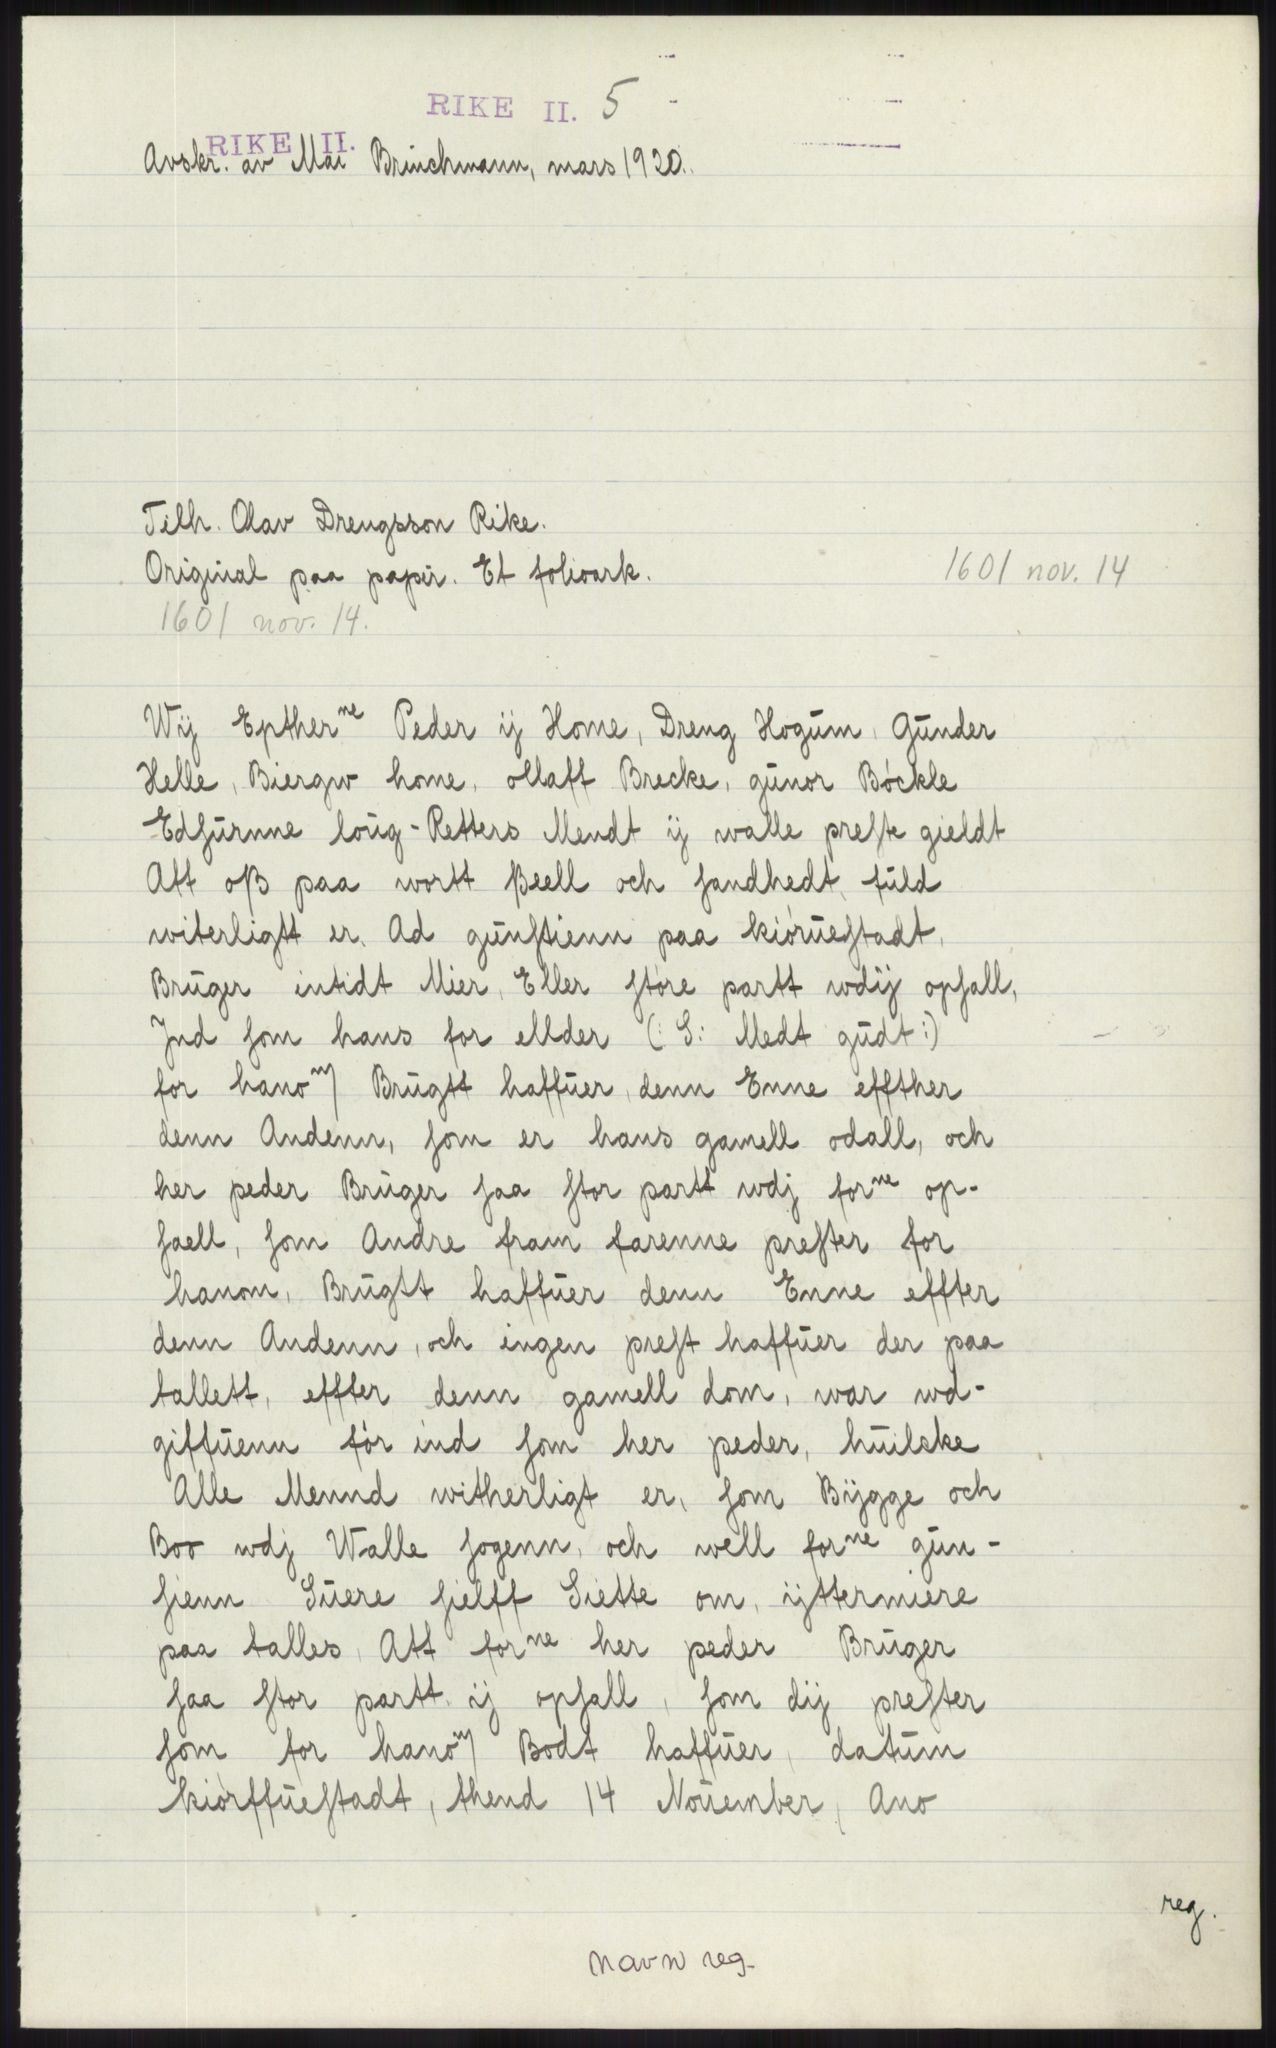 RIKE II. 5
RIKE II.
Avskr. av Mai Brinchmann, mars 1920.
Tilh. Olav Drengsson Rike.
Original paa papir. Et folioark.
1601 nov. 14
1601 nov. 14.
Wij Epther ne Peder ij Home, Dreng Hogŭm, Gŭnder
Helle, Biergw home, ollaff Brecke, gŭnor Bóckle
Edſŭrnne loŭg-Retters Mendt ij walle preſte gieldt
Att oß paa wortt ſʒeell och ſandhedt, fŭld
witerligtt er, Ad gŭnſtienn paa kiórŭeſtadt,
Brŭger intidt Mier, Eller ſtóre partt wdÿ opſall,
Jnd ſom hans for ellder (: S: Medt gŭdt :)
for hanom Brŭgtt haffŭer, denn Enne effther
denn Andenn, ſom er hans gamell odall, och
her peder Brŭger ſaa ſtor partt wdj for ne op-
ſaell, ſom Andre fram farenne preſter for
hanom, Brŭgtt haffŭer denn Enne effter
denn Andenn, och ingen preſt haffŭer der paa
tallett, effter denn gamell dom, war wd-
giffŭenn fór ind ſom her peder, hŭilske
Alle Mennd witherligt er, ſom Bÿgge och
Boo wdj Walle ſogenn, och well for ne gŭn-
ſienn Sŭere ſielff Siette om, ÿttermiere
paa talles, Att for ne her peder Brŭger
ſaa ſtor partt ij opſall, ſom dij preſter
ſom for hanom Bodt haffŭer, datŭm
kiórffŭeſtadt, thend 14 Noŭember, Ano
reg.
navn reg.